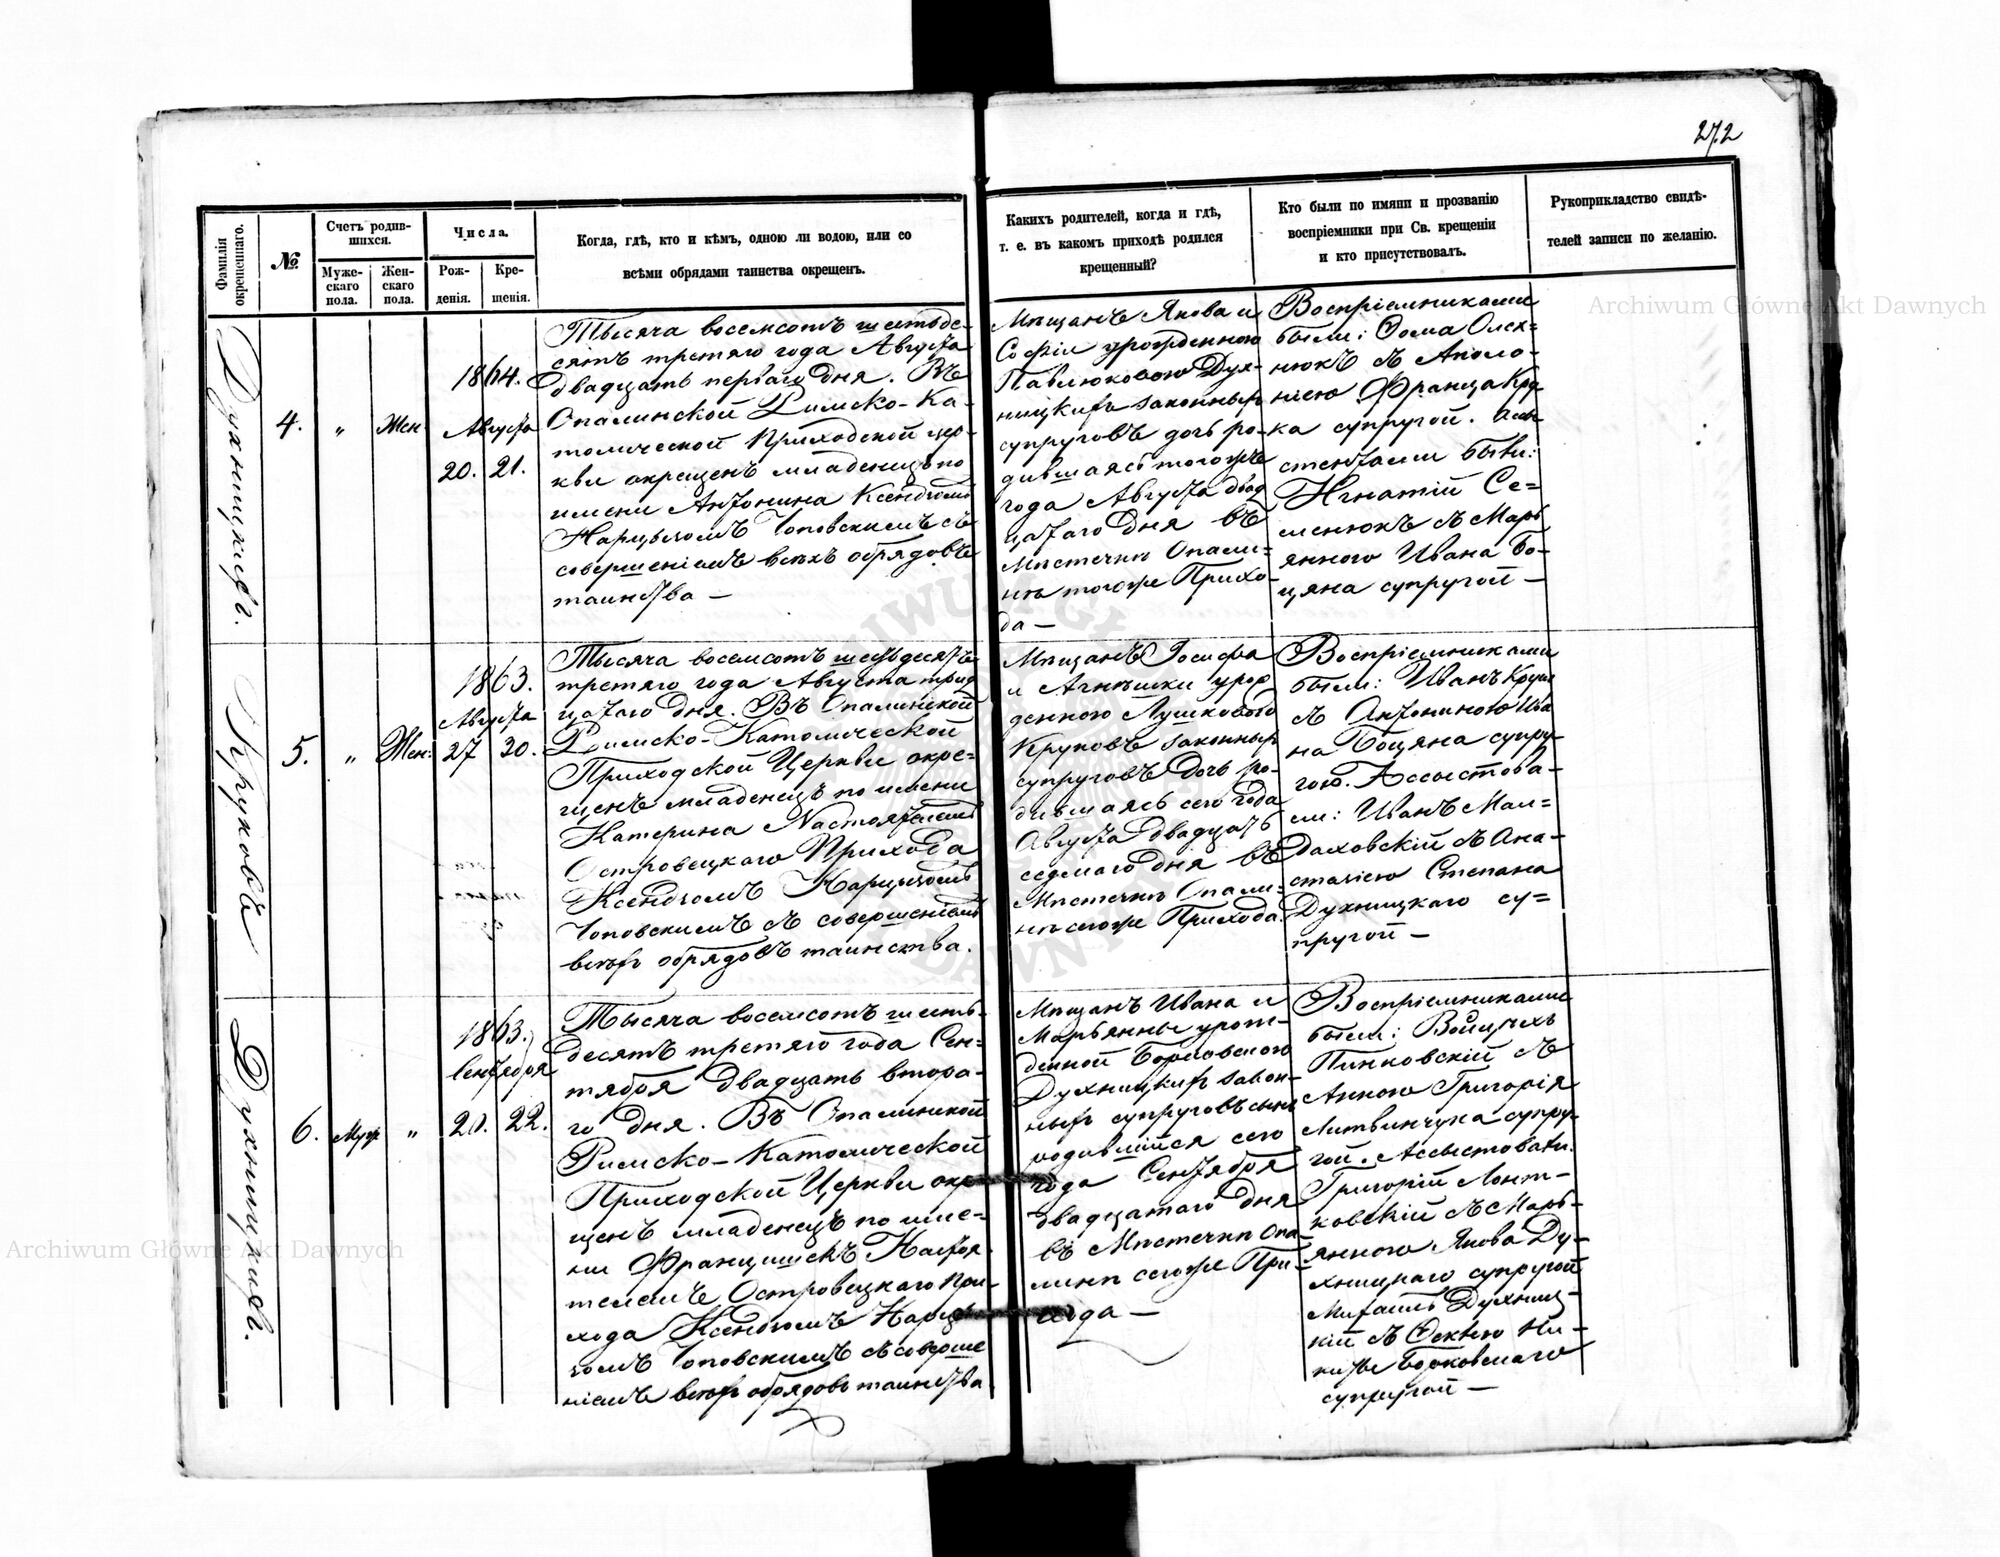 272
Фамилія окрещеннаго.
№
Счетъ родив-
шихся.
Муже-
скаго
пола.
Жен-
скаго
пола.
Числа.
Рож-
денія.
Кре-
щенія.
Когда, гдѣ, кто и кѣмъ, одною ли водою, или со
всѣми обрядами таинства окрещенъ.
Какихъ родителей, когда и гдѣ,
т. е. въ какомъ приходѣ родился
крещенный?
Кто были по имяни и прозванію
воспріемники при Св. крещеніи
и кто присутствовалъ.
Рукоприкладство свидѣ-
телей записи по желанію.
Духницкихъ.
4.
"
Жен.
1864.
Августа
20. 21.
Тысяча восемсотъ шестьде-
сятъ третяго года Августа
двадцать перваго дня. Въ
Опалинской Римско-Ка-
толической Приходской цер-
кви окрещенъ младенецъ по
имени Антонина Ксендзомъ
Нарцызомъ Топовскимъ съ
совершеніемъ всѣхъ обрядовъ
таинства —
Мѣщанъ Якова и
Софіи урожденной
Павлюковою Дух-
ницкихъ законныхъ
супруговъ дочь ро-
дившаяся тогожъ
года Августа двад
цатаго дня въ
Мѣстечкѣ Опали-
нѣ тогоже Прихо-
да —
Воспріемниками
были: Фома Олех-
нюкъ съ Аполо-
ніею Франца Кру-
ка супругой. Асы-
стентами были:
Игнатій Се-
менюкъ съ Марь
янною Ивана Бо-
цяна супругой —
Круковъ
5.
"
Жен.
1863.
Августа
27 30.
Тысяча восемсотъ шестьдесятъ
третяго года Августа трид
цатаго дня. Въ Опалинской
Римско-Католической
Приходской Церкви окре-
щенъ младенецъ по имени
Катерина Настоятелемъ
Островецкаго Прихода
Ксендзомъ Нарцызомъ
Топовскимъ съ совершеніемъ
всѣхъ обрядовъ таинства.
Мѣщанъ Іосифа
и Агнѣшки урож
денною Лушковою
Круковъ законныхъ
супруговъ дочь ро-
дившаясь сего года
Августа двадцать
седмаго дня въ
Мѣстечкѣ Опали-
нѣ сегоже Прихода.
Воспріемниками
были: Иванъ Крукъ
съ Антониною Ива
на Боцяна супру-
гою. Ассыстова-
ли: Иванъ Мал-
даховскій съ Ана-
стасіею Степана
Духницкаго су-
пругой —
Духницкихъ.
6.
Муж
"
1863.
Сентября
20. 22.
Тысяча восемсотъ шесть-
десятъ третяго года Сен-
тября двадцать втора-
го дня. Въ Опалинской
Римско-Католической
Приходской Церкви окре
щенъ младенецъ по име-
ни Францишекъ Настоя-
телемъ Островецкаго При-
хода Ксендзомъ Нарцы
зомъ Топовскимъ съ соверше
ніемъ всѣхъ обрядовъ таинства
Мѣщанъ Ивана и
Марьянны урож-
денной Борковскою
Духницкихъ закон-
ныхъ супруговъ сынъ
родившійся сего
года Сентября
двадцатаго дня
въ Мѣстечкѣ Опа-
линѣ сегоже При-
хода —
Воспріемниками
были: Войцѣхъ
Пинковскій съ
Анною Григорія
Литвинчука супру-
гой. Ассыстовали:
Григорій Лонт-
ковскій съ Марь-
янною Якова Ду-
хницкаго супругой
Михаилъ Духниц-
кій съ Феклею Ни-
киты Борковскаго
супругой —
Archiwum Główne Akt Dawnych
Archiwum Główne Akt Dawnych